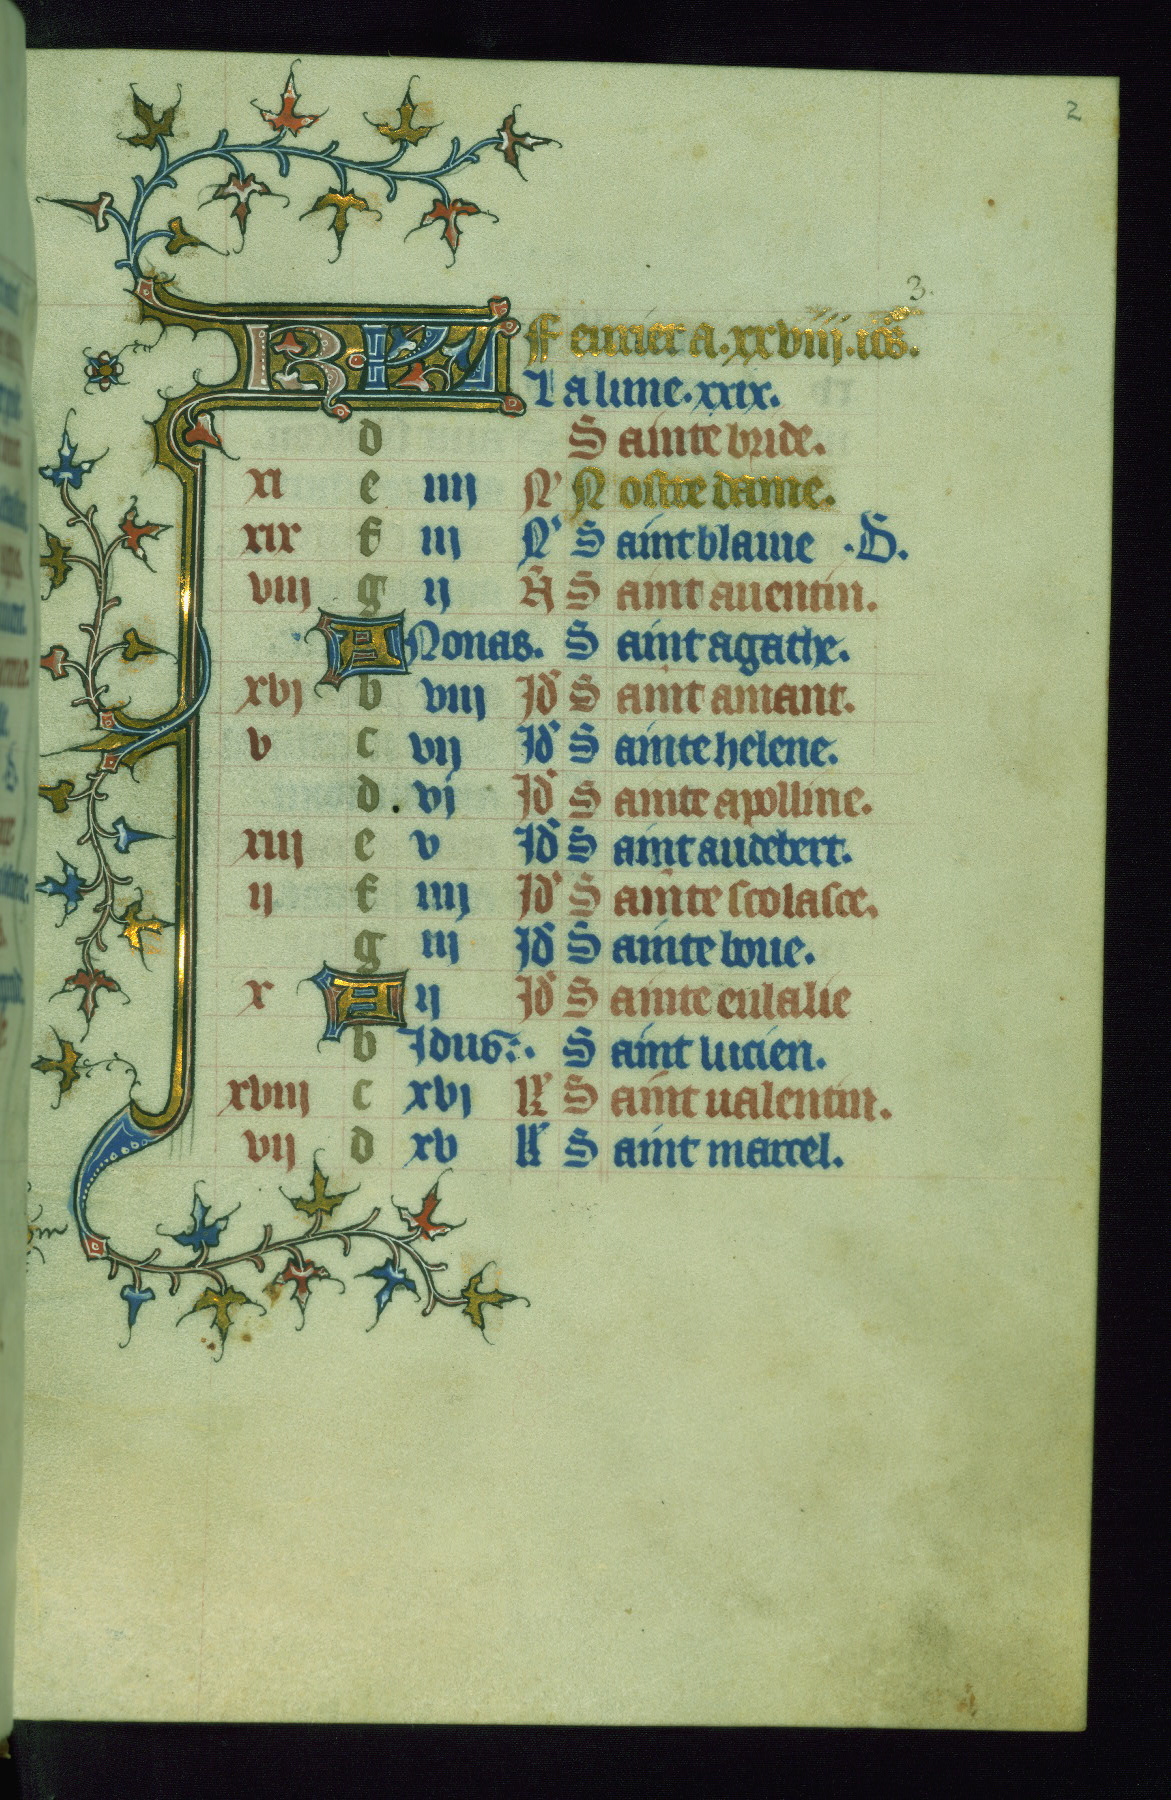 2
3.
KL ffeurier a .xxviij. iours.
La lune .xxix.
d Sainte bride.
xi e iiij N' Nostre dame.
xix f iij N' Saint blaiue .D.
viij g ij N Saint auentin.
A Nonas. Sainte agathe.
xvj b viij Id' Saint amant.
v c vij Id' Sainte helene.
d . vj Id' Sainte apolline.
xiij e v Id' Saint audebert.
ij f iiij Id' Sainte scolasce.
g iij Id' Sainte boue.
x A ij Id' Sainte eulalie
b Idus. Saint lucien.
xviij c xvj kl' Saint ualentin.
vij d xv kl' Saint marcel.